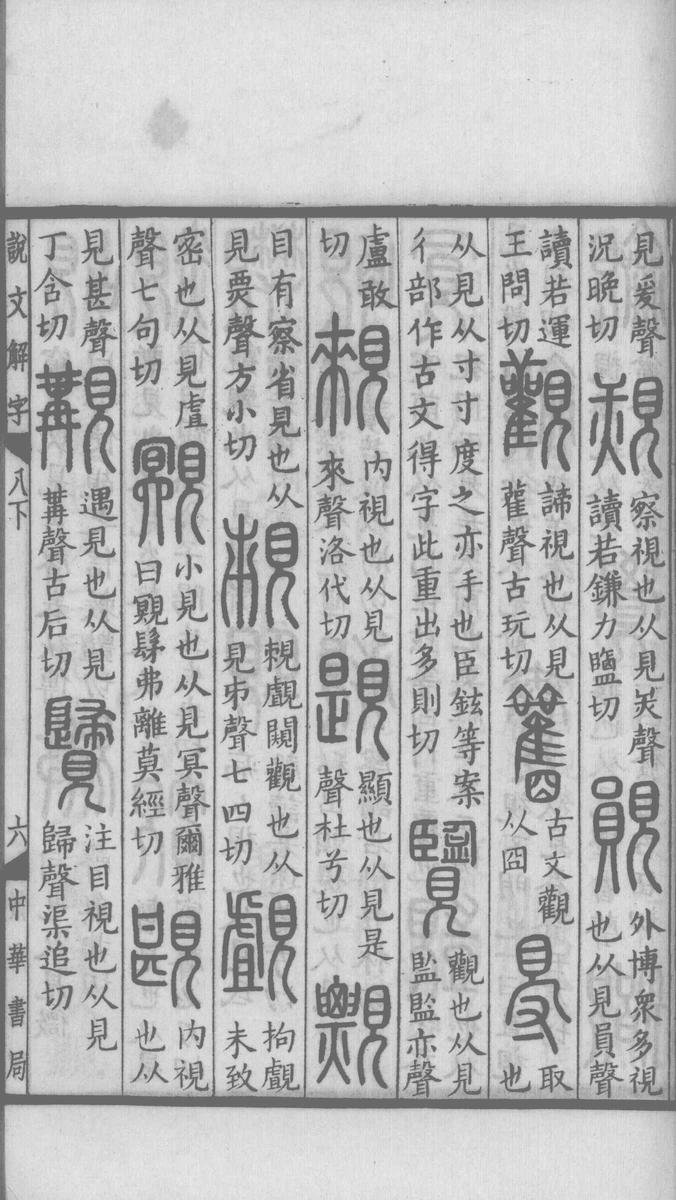 見爰聲況晚切覝察視也从見𣧻聲讀若鎌力鹽切䚋外博衆多視也从見員聲
讀若運王問切觀諦視也从見雚聲古玩切𥍮古文觀从囧䙷取也
从見从寸寸度之亦手也臣鉉等案彳部作古文得字此重出多則切覽觀也从見監監亦聲
盧敢切䚅內視也从見來聲洛代切䚣顯也从見是聲杜兮切𧢄
目有察省見也从見票聲方小切䙼䙼覰闚觀也从見𠂔聲七四切覰拘覰未致
密也从見虘聲七句切覭小見也从見冥聲爾雅曰覭髳弗離莫經切䚂內視也从
見甚聲丁含切覯遇見也从見冓聲古后切𧢦注目視也从見歸聲渠追切
說文解字 八下 六 中華書局